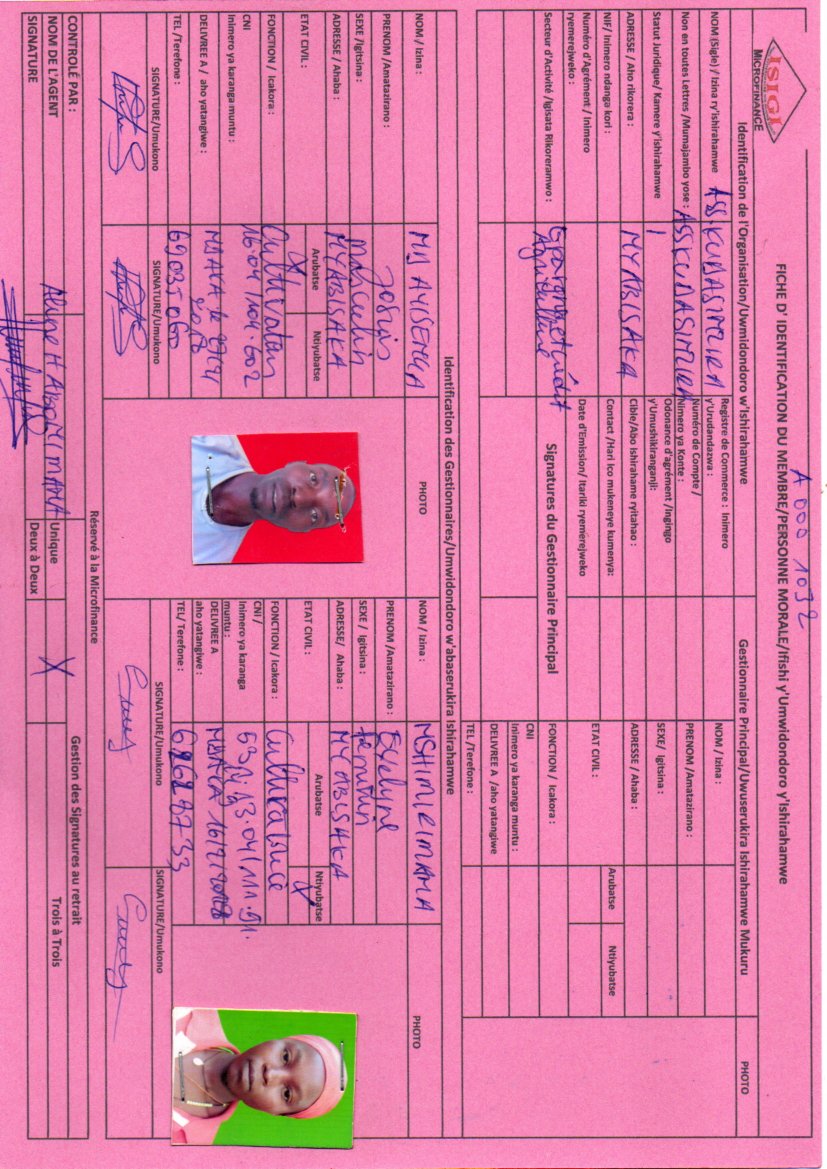 ISIGI
MICROFINANCE
A 000 1032
FICHE D' IDENTIFICATION DU MEMBRE/PERSONNE MORALE/Ifishi y'Umwidondoro y'Ishirahamwe
Identification de l'Organisation/Uwmidondoro w'Ishirahamwe
Gestionnaire Principal/Uwuserukira Ishirahamwe Mukuru
PHOTO
NOM (Sigle) / Izina ry'ishirahamwe
ASS. KUDASIMZIRA
Non en toutes Lettres /Mumajambo yose :
ASS KUDASIMZIRA
Statut Juridique/ Kamere y'ishirahamwe
ADRESSE / Aho rikorera :
MYABISAKA
NIF/ Inimero ndanga kori :
Numéro d'Agrément / Inimero
ryemerejweko :
Secteur d'Activité /Igisata Rikoreramwo :
Agriculture
Registre de Commerce : Inimero
y'Urudandazwa :
Numéro de Compte /
Nimero ya Konte :
Odonance d'agrément /Ingingo
y'Umushikiranganji:
Cible/Abo Ishirahame ryitahao :
Contact /Hari ico mukeneye kumenya:
Date d'Emission/ Itariki ryemerejweko
Signatures du Gestionnaire Principal
NOM / Izina :
PRENOM /Amatazirano :
SEXE/ Igitsina :
ADRESSE / Ahaba :
ETAT CIVIL :
Arubatse
Ntiyubatse
FONCTION / Icakora :
CNI
Inimero ya karanga muntu :
DELIVREE A /aho yatangiwe
TEL /Terefone :
Identification des Gestionnaires/Umwidondoro w'abaserukira Ishirahamwe
NOM / Izina :
PHOTO
PRENOM /Amatazirano :
SEXE /Igitsina :
Masculin
ADRESSE / Ahaba :
MYABISAKA
ETAT CIVIL :
Arubatse
X
Ntiyubatse
FONCTION / Icakora :
Cultivateur
CNI
Inimero ya karanga muntu :
DELIVREE A / aho yatangiwe :
TEL /Terefone :
69035060
SIGNATURE/Umukono
SIGNATURE/Umukono
NOM / Izina :
NSHIMIRIMANA
PHOTO
PRENOM /Amatazirano :
Evelyne
SEXE / Igitsina :
Feminin
ADRESSE/ Ahaba :
MYABISAKA
ETAT CIVIL :
Arubatse
Ntiyubatse
X
FONCTION / Icakora :
Cultivatrice
CNI /
Inimero ya karanga
muntu :
DELIVREE A
aho yatangiwe :
TEL/ Terefone :
SIGNATURE/Umukono
SIGNATURE/Umukono
Réservé à la Microfinance
CONTROLÉ PAR :
Gestion des Signatures au retrait
NOM DE L'AGENT
Aline HABONIMANA
Unique
Trois à Trois
SIGNATURE
Deux à Deux
X